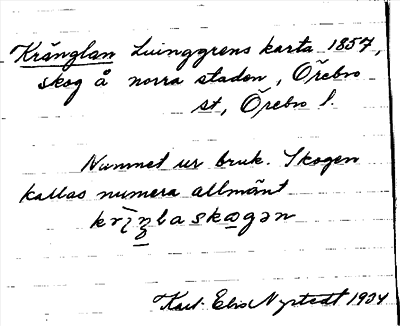 Krånglan Ljunggrens karta 1857,
skog å norra staden, Örebro
st, Örebro l.
Namnet ur bruk. Skogen
kallas numera allmänt
Karl Elis Nystedt 1934